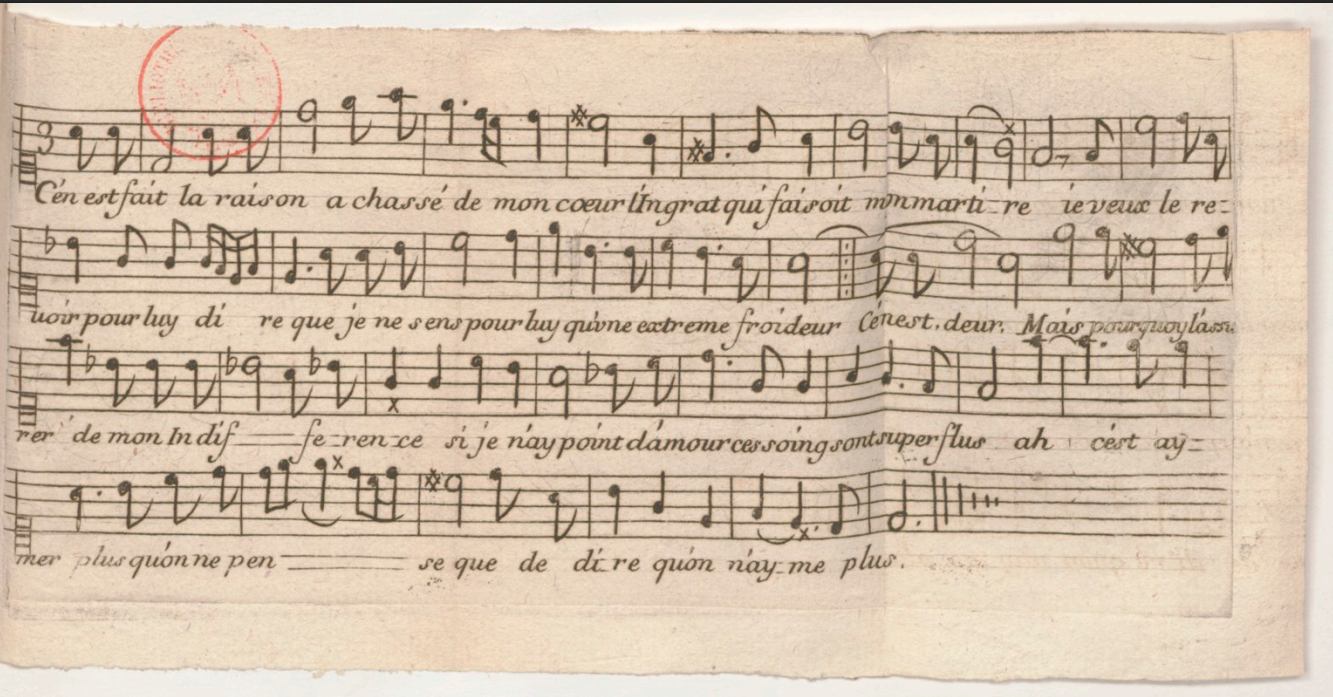 3
C'en est fait la raison a chassé de mon coeur l'Ingrat qui faisoit mon marti=re ie veux le re=
uoir pour luy di re que je ne sens pour luy qu'vne extreme froideur C'en est. deur. Mais pourquoy l'assu
rer de mon Indif___fe=ren=ce si je n'ay point d'amour ces soings sont superflus ah c'est ay=
mer plus qu'on ne pen___se que de di=re qu'on n'ay=me plus.